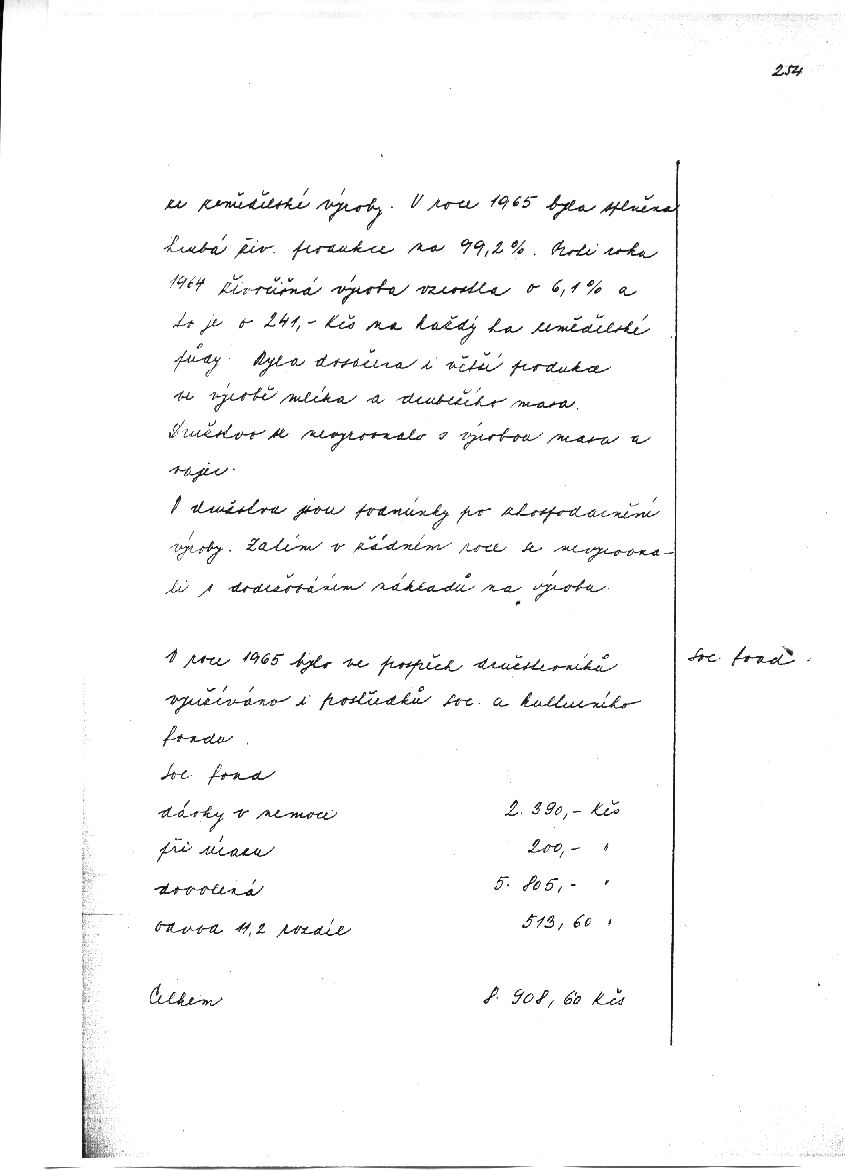 254
ze zemědělské výroby. V roce 1965 byla splněna
hrubá živ. produkce na 99,2%. Proti roku
1964 živočišná výroba vzrostla o 6,1% a
to je o 241,- Kčs na každý ha zemědělské
půdy. Byla docílena i větší produkce
ve výrobě mléka a drubežího masa.
Družstvo se nevyrovnalo s výrobou masa a
vajec.
V družstvu jsou podmínky po zhospodárnění
výroby. Zatím v žádném roce se nevyrovna-
li s dodržováním nákladů na výrobu.
V roce 1965 bylo ve prospěch družstevníků
využíváno i prostředků soc. a kulturního
fondu.
Soc. fond.
Soc fond
dárky v nemoci 2.390,- Kčs
při úrazu 200,- "
dovolená 5.805,- "
odvod 11,2 rozdíl 513,60 "
Celkem 8.908,60 Kčs